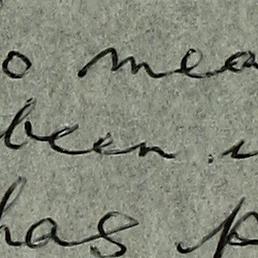 o mea
been
has p